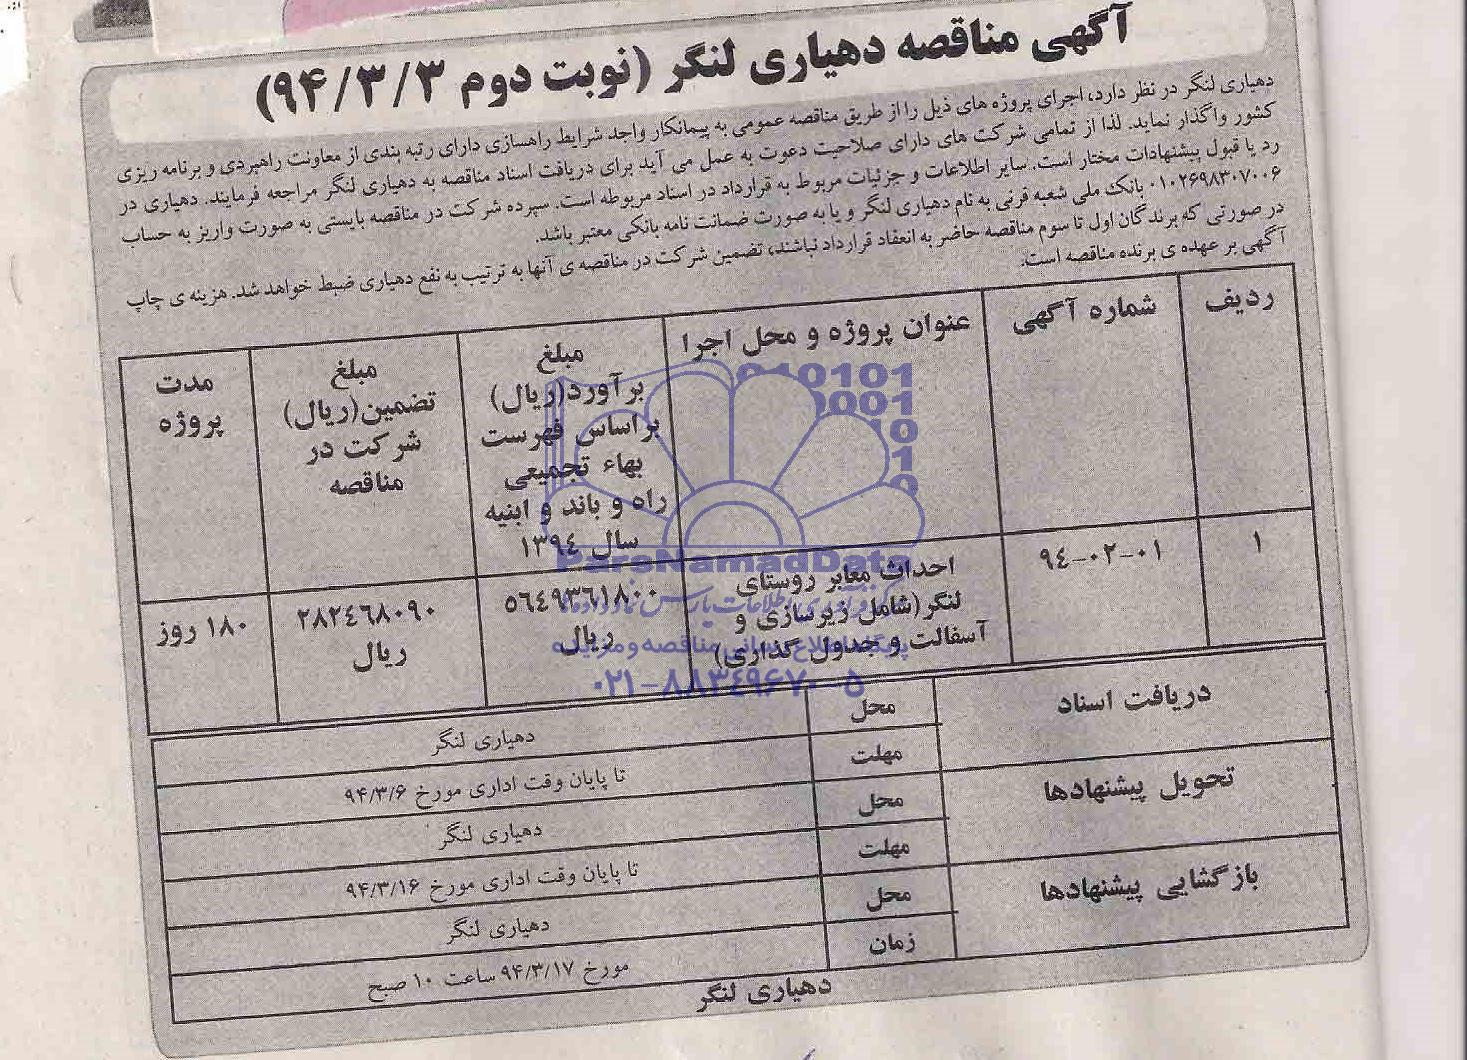 آگهی مناقصه دهیاری لنگر (نوبت دوم ۹۴/۳/۳)
دهیاری لنگر در نظر دارد، اجرای پروژه های ذیل را از طریق مناقصه عمومی به پیمانکار واجد شرایط راهسازی دارای رتبه بندی از معاونت راهبردی و برنامه ریزی
کشور واگذار نماید. لذا از تمامی شرکت های دارای صلاحیت دعوت به عمل می آید برای دریافت اسناد مناقصه به دهیاری لنگر مراجعه فرمایند. دهیاری در
رد یا قبول پیشنهادات مختار است. سایر اطلاعات و جزئیات مربوط به قرارداد در اسناد مربوطه است. سپرده شرکت در مناقصه بایستی به صورت واریز به حساب
۰۱۰۲۶۹۸۳۰۷۰۰۶ بانک ملی شعبه قرنی به نام دهیاری لنگر و یا به صورت ضمانت نامه بانکی معتبر باشد.
در صورتی که برندگان اول تا سوم مناقصه حاضر به انعقاد قرارداد نباشند، تضمین شرکت در مناقصه ی آنها به ترتیب به نفع دهیاری ضبط خواهد شد. هزینه ی چاپ
آگهی بر عهده ی برنده مناقصه است.
ردیف
شماره آگهی
عنوان پروژه و محل اجرا
مبلغ
برآورد(ریال)
براساس فهرست
بهاء تجمیعی
راه و باند و ابنیه
سال ۱۳۹٤
مبلغ
تضمین(ریال)
شرکت در
مناقصه
مدت
پروژه
۱
۹٤-۰۲-۰۱
احداث معابر روستای
لنگر(شامل زیرسازی و
آسفالت و جداول گذاری)
٥٦٤۹۳٦۱۸۰۰
ریال
۲۸۲٤٦۸۰۹۰
ریال
۱۸۰ روز
دریافت اسناد
محل
دهیاری لنگر
مهلت
تا پایان وقت اداری مورخ ۹۴/۳/۶
تحویل پیشنهادها
محل
دهیاری لنگر
مهلت
تا پایان وقت اداری مورخ ۹۴/۳/۱۶
بازگشایی پیشنهادها
محل
دهیاری لنگر
زمان
مورخ ۹۴/۳/۱۷ ساعت ۱۰ صبح
دهیاری لنگر
ParsNamadData
پایگاه اطلاع رسانی مناقصه و مزایده
۰۲۱-۸۸۳۴۹۶۷۰-۵